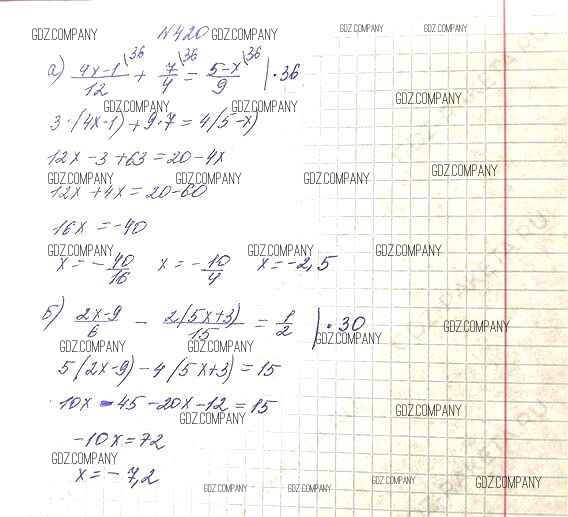 GDZ.COMPANY №420 GDZ.COMPANY GDZ.COMPANY GDZ.COMPANY
а) 4x-1/12 \36 + 7/4 \36 = 5-x/9 \36 | ·36
GDZ.COMPANY GDZ.COMPANY GDZ.COMPANY
3·(4x-1)+9·7=4(5-x)
12x-3+63=20-4x
GDZ.COMPANY GDZ.COMPANY GDZ.COMPANY GDZ.COMPANY
12x+4x=20-60
16x=-40
GDZ.COMPANY GDZ.COMPANY GDZ.COMPANY
x=-40/16 x=-10/4 x=-2,5
б) 2x-9/6 - 2(5x+3)/15 = 1/2 | ·30
GDZ.COMPANY
GDZ.COMPANY GDZ.COMPANY GDZ.COMPANY
5(2x-9)-4(5x+3)=15
10x-45-20x-12=15
GDZ.COMPANY GDZ.COMPANY
-10x=72
GDZ.COMPANY
x=-7,2
GDZ.COMPANY GDZ.COMPANY GDZ.COMPANY GDZ.COMPANY